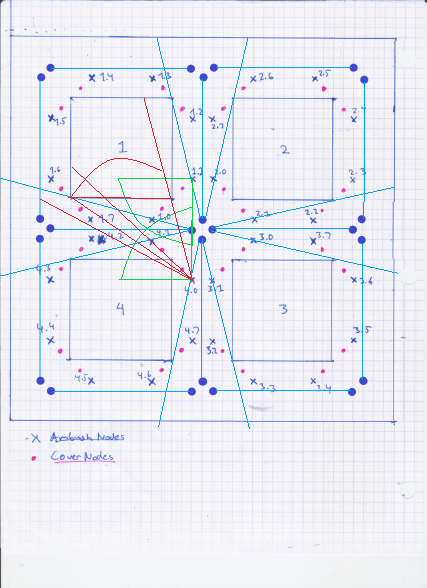 1.4
1.3
2.6
2.5
1.5
1.2
2.7
2.4
1
2
1.6
1.1
2.0
2.3
1.7
1.0
2.1
2.2
4.2
4.1
3.0
3.7
4.3
4.0
3.1
3.6
4
3
4.4
4.7
3.2
3.5
4.5
4.6
3.3
3.4
x Ambush Nodes
Cover Nodes